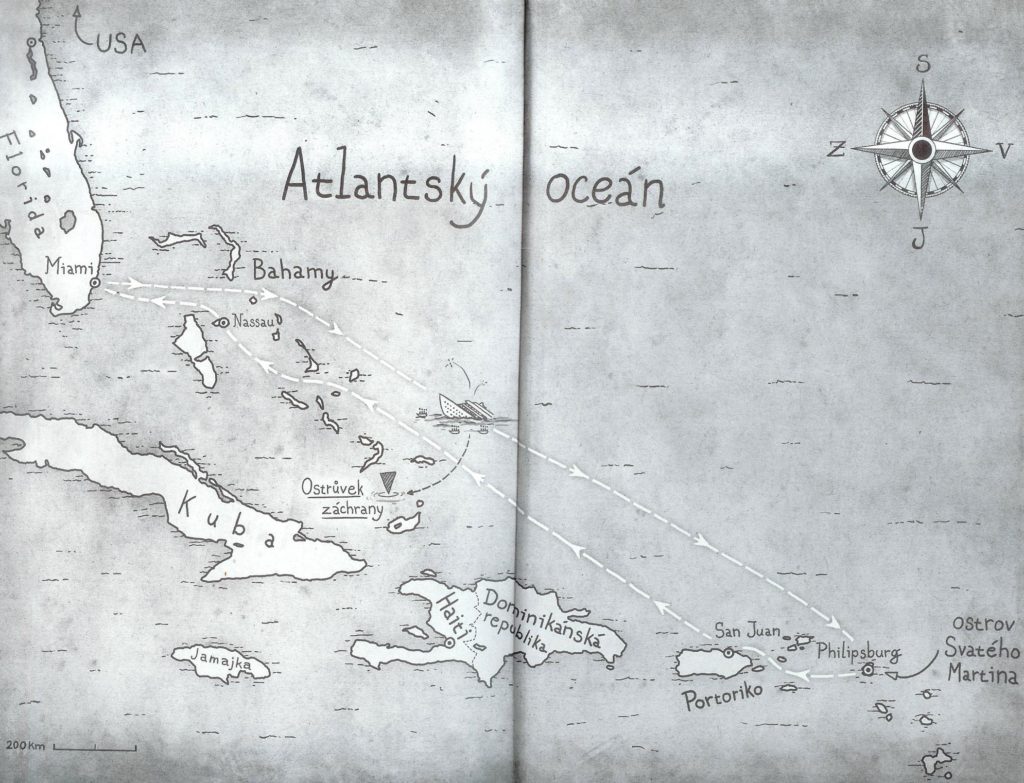 USA
S
Z
V
J
Florida
Atlantský oceán
Miami
Bahamy
Nassau
Ostrůvek
záchrany
Kuba
Haiti
Dominikánská
republika
Jamajka
San Juan
Portoriko
Philipsburg
ostrov
Svatého
Martina
200 Km